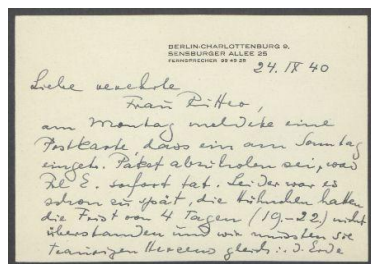 BERLIN-CHARLOTTENBURG 9,
SENSBURGER ALLEE 25
FERNSPRECHER
24. IX 40
Liebe verehrte
Frau Ritter,
am Montag meldete eine
Postkarte, dass ein am Sonntag
eingetr. Paket abzuholen sei, was
Frl E. sofort tat. Leider war es
schon zu spät, die Hühnchen hatten
die Frist von 4 Tagen (19.-22.) nicht
überstanden und wir mussten sie
traurigen Herzens gleich i. d. Erde